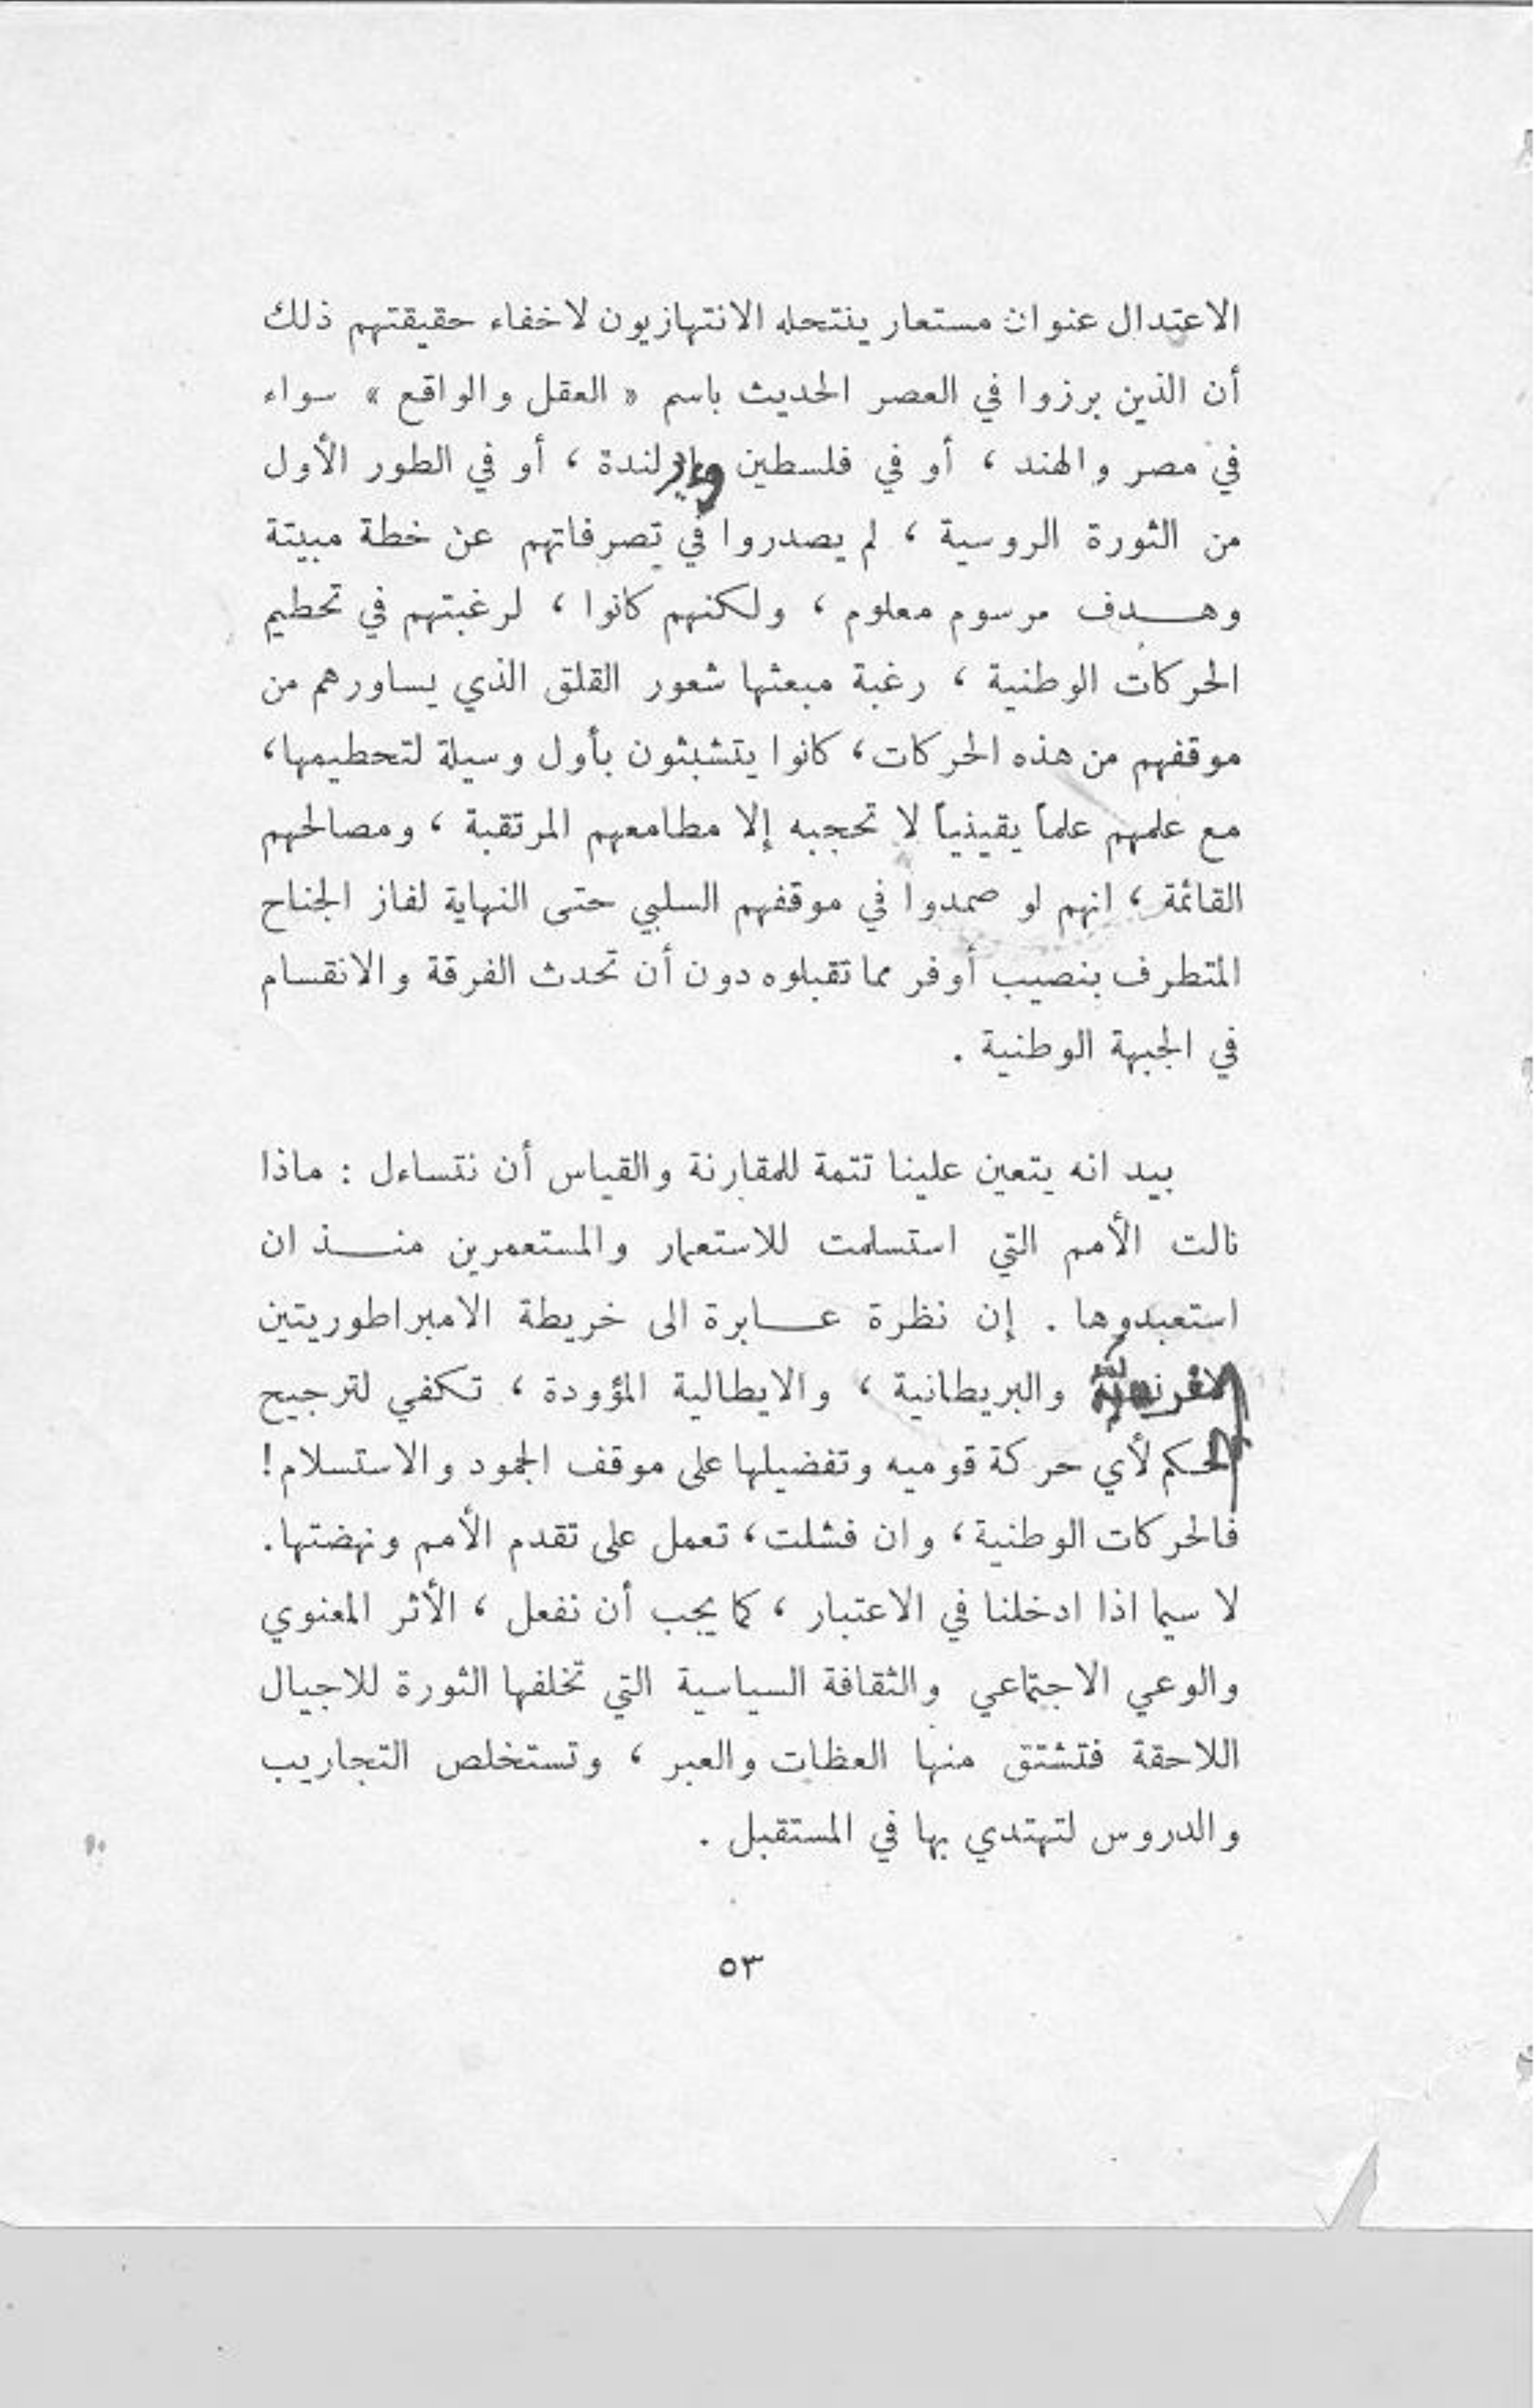 الاعتدال عنوان مستعار ينتحله الانتهازيون لاخفاء حقيقتهم ذلك
أن الذين برزوا في العصر الحديث باسم « العقل والواقع » سواء
في مصر والهند ، أو في فلسطين وايرلندة ، أو في الطور الأول
من الثورة الروسية ، لم يصدروا في تصرفاتهم عن خطة مبيتة
وهــدف مرسوم معلوم ، ولكنهم كانوا ، لرغبتهم في تحطيم
الحركات الوطنية ، رغبة مبعثها شعور القلق الذي يساورهم من
موقفهم من هذه الحركات ، كانوا يتشبثون بأول وسيلة لتحطيمها ،
مع علمهم علماً يقينياً لا تحجبه إلا مطامعهم المرتقبة ، ومصالحهم
القائمة ، انهم لو صمدوا في موقفهم السلبي حتى النهاية لفاز الجناح
المتطرف بنصيب أوفر مما تقبلوه دون أن تحدث الفرقة والانقسام
في الجبهة الوطنية .
بيد انه يتعين علينا تتمة للمقارنة والقياس أن نتساءل : ماذا
نالت الأمم التي استسلمت للاستعمار والمستعمرين منــذ ان
استعبدوها . إن نظرة عــابرة الى خريطة الامبراطوريتين
والبريطانية ، والايطالية المؤودة ، تكفي لترجيح
الحكم لأي حركة قوميه وتفضيلها على موقف الجمود والاستسلام !
فالحركات الوطنية ، وان فشلت ، تعمل على تقدم الأمم ونهضتها .
لا سيما اذا ادخلنا في الاعتبار ، كما يجب أن نفعل ، الأثر المعنوي
والوعي الاجتماعي والثقافة السياسية التي تخلفها الثورة للاجيال
اللاحقة فتشتق منها العظات والعبر ، وتستخلص التجاريب
والدروس لتهتدي بها في المستقبل .
٥٣